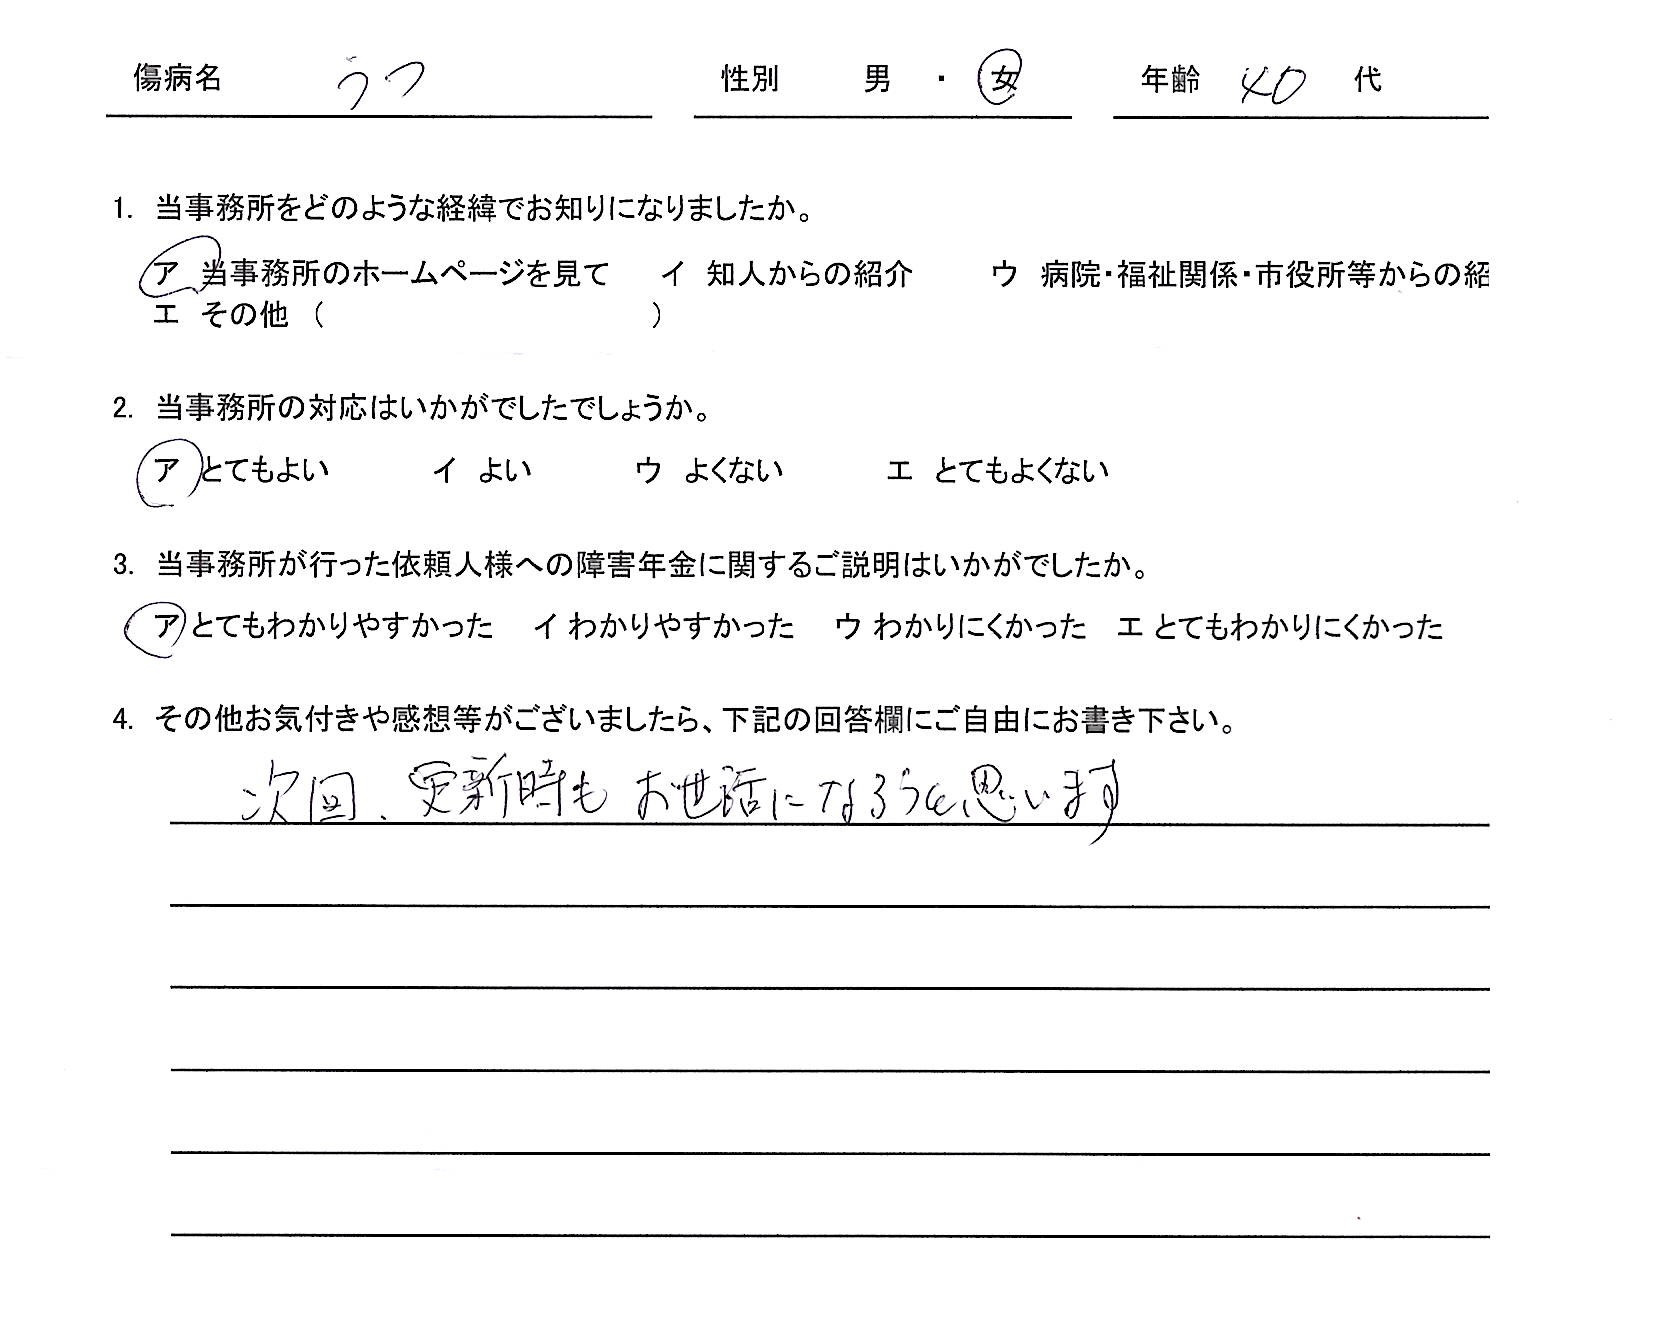 傷病名 うつ 性別 男 ・ 女 年齢 40 代
1. 当事務所をどのような経緯でお知りになりましたか。
ア 当事務所のホームページを見て イ 知人からの紹介 ウ 病院・福祉関係・市役所等からの紹
エ その他 ( )
2. 当事務所の対応はいかがでしたでしょうか。
ア とてもよい イ よい ウ よくない エ とてもよくない
3. 当事務所が行った依頼人様への障害年金に関するご説明はいかがでしたか。
ア とてもわかりやすかった イ わかりやすかった ウ わかりにくかった エ とてもわかりにくかった
4. その他お気付きや感想等がございましたら、下記の回答欄にご自由にお書き下さい。
次回、更新時もお世話になろうと思います